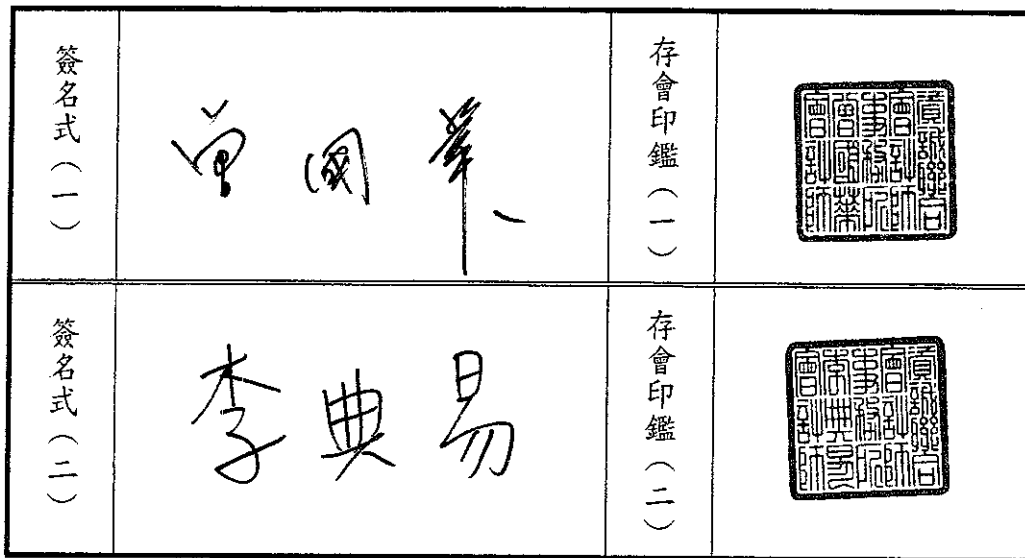 簽名式（一）
曾國華
存會印鑑（一）
資誠聯合
會計師
事務所
曾國華
會計師
簽名式（二）
李典易
存會印鑑（二）
資誠聯合
會計師
事務所
李典易
會計師